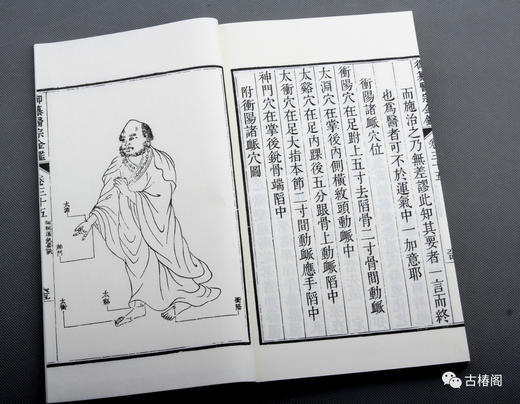 而施治之乃無差謬此知其要者一言而終
也為醫者可不於運氣中一加意耶
衝陽諸䘑穴位
衝陽穴在足跗上五寸去陷骨二寸骨間動䘑
太淵穴在掌後內側橫紋頭動䘑中
太谿穴在足內踝後五分跟骨上動䘑陷中
太衝穴在足大指本節二寸間動䘑應手陷中
神門穴在掌後銳骨端陷中
附衝陽諸䘑穴圖
御纂醫宗金鑑
卷三十五
太淵
神門
太衝
太谿
衝陽
古椿阁